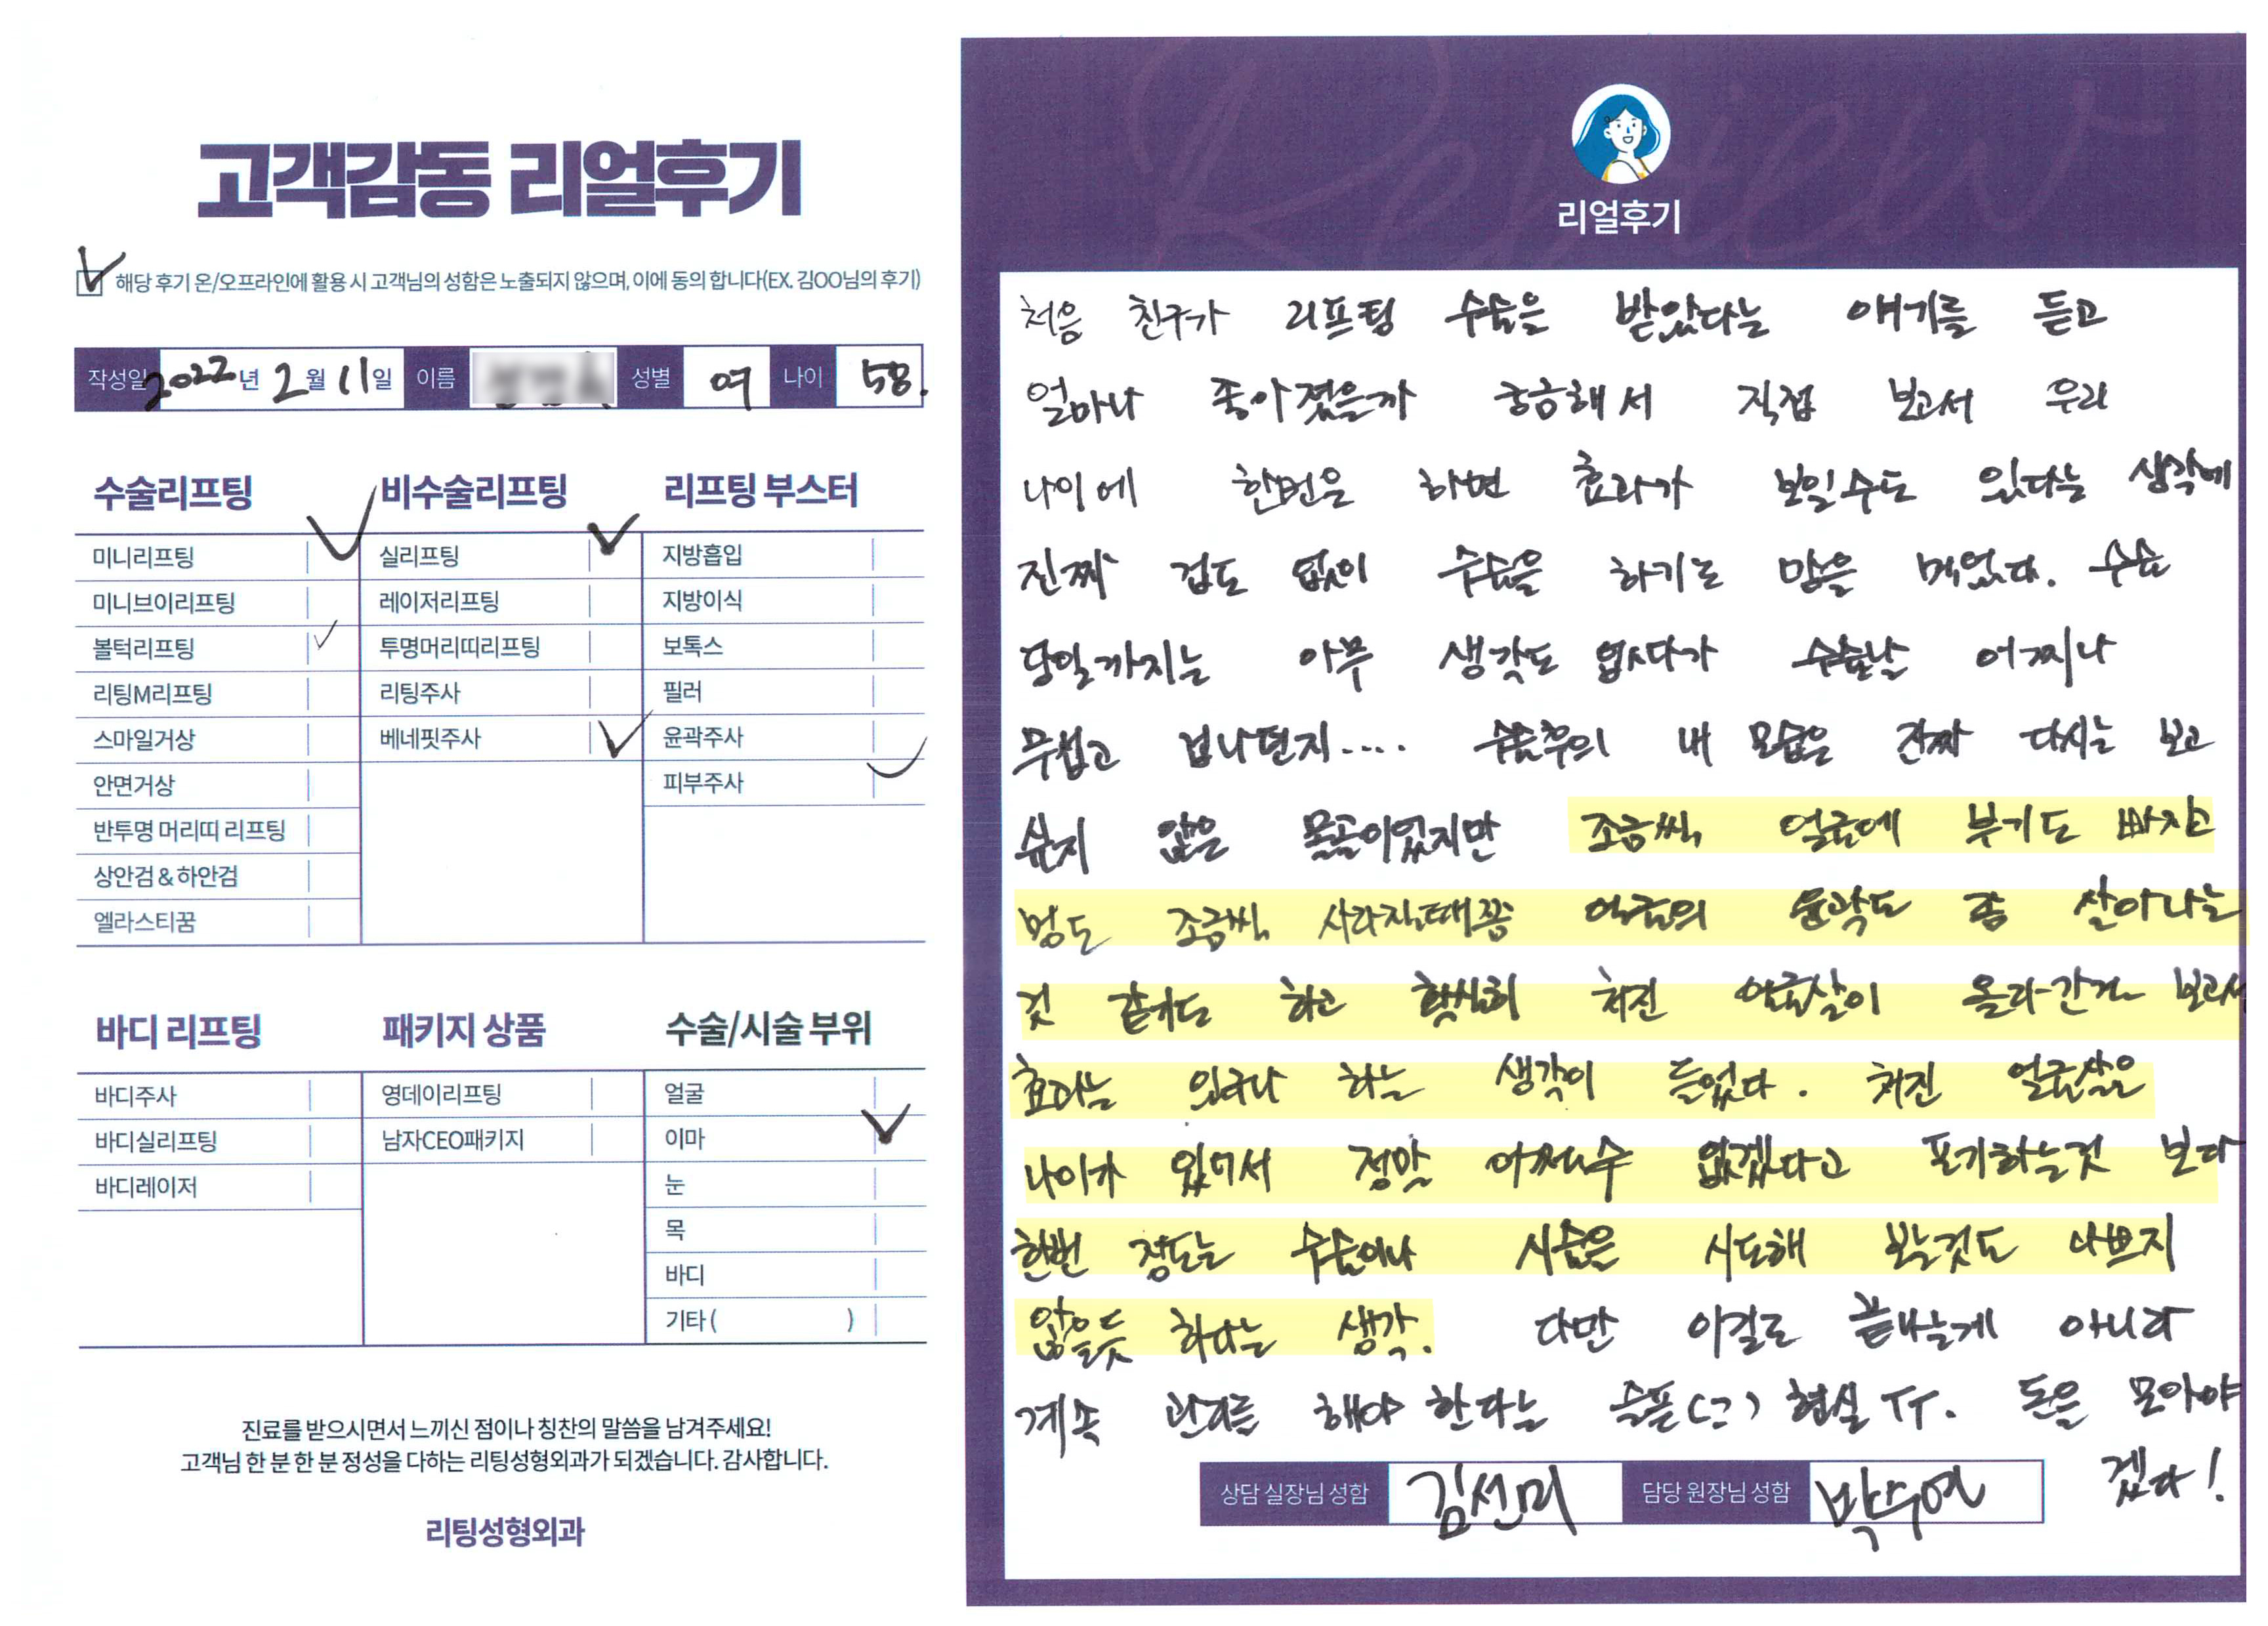 고객감동 리얼후기
해당 후기 온/오프라인에 활용 시 고객님의 성함은 노출되지 않으며, 이에 동의 합니다(EX. 김OO님의 후기)
작성일 2022년 2월 11일 이름 성별 여 나이 58.
수술리프팅
미니리프팅
미니브이리프팅
볼턱리프팅
리팅M리프팅
스마일거상
안면거상
반투명 머리띠 리프팅
상안검 & 하안검
엘라스티꿈
비수술리프팅
실리프팅
레이저리프팅
투명머리띠리프팅
리팅주사
베네핏주사
리프팅 부스터
지방흡입
지방이식
보톡스
필러
윤곽주사
피부주사
바디 리프팅
바디주사
바디실리프팅
바디레이저
패키지 상품
영데이리프팅
남자CEO패키지
수술/시술 부위
얼굴
이마
눈
목
바디
기타 ( )
진료를 받으시면서 느끼신 점이나 칭찬의 말씀을 남겨주세요!
고객님 한 분 한 분 정성을 다하는 리팅성형외과가 되겠습니다. 감사합니다.
리팅성형외과
Review
리얼후기
처음 친구가 리프팅 수술을 받았다는 얘기를 듣고
얼마나 좋아졌을까 궁금해서 직접 보고서 우리
나이에 한번은 하면 효과가 보일수도 있다는 생각에
진짜 겁도 없이 수술을 하기로 맘을 먹었다. 수술
당일까지는 아무 생각도 없다가 수술날 어찌나
무섭고 겁나던지.... 수술후의 내 모습은 진짜 다시는 보고
싶지 않은 몰골이었지만 조금씩 얼굴에 부기도 빠지고
멍도 조금씩 사라질때쯤 얼굴의 윤곽도 좀 살아나는
것 같기도 하고 확실히 처진 얼굴살이 올라간걸 보고서
효과는 있구나 하는 생각이 들었다. 처진 얼굴살은
나이가 있어서 정말 어쩔수 없겠다고 포기하는것 보다
한번 정도는 수술이나 시술은 시도해 보는것도 나쁘지
않을듯 하다는 생각. 다만 이걸로 끝나는게 아니라
계속 관리를 해야 한다는 슬픈(?) 현실 ㅜㅜ. 돈을 모아야
겠다!
상담 실장님 성함 김선미 담당 원장님 성함